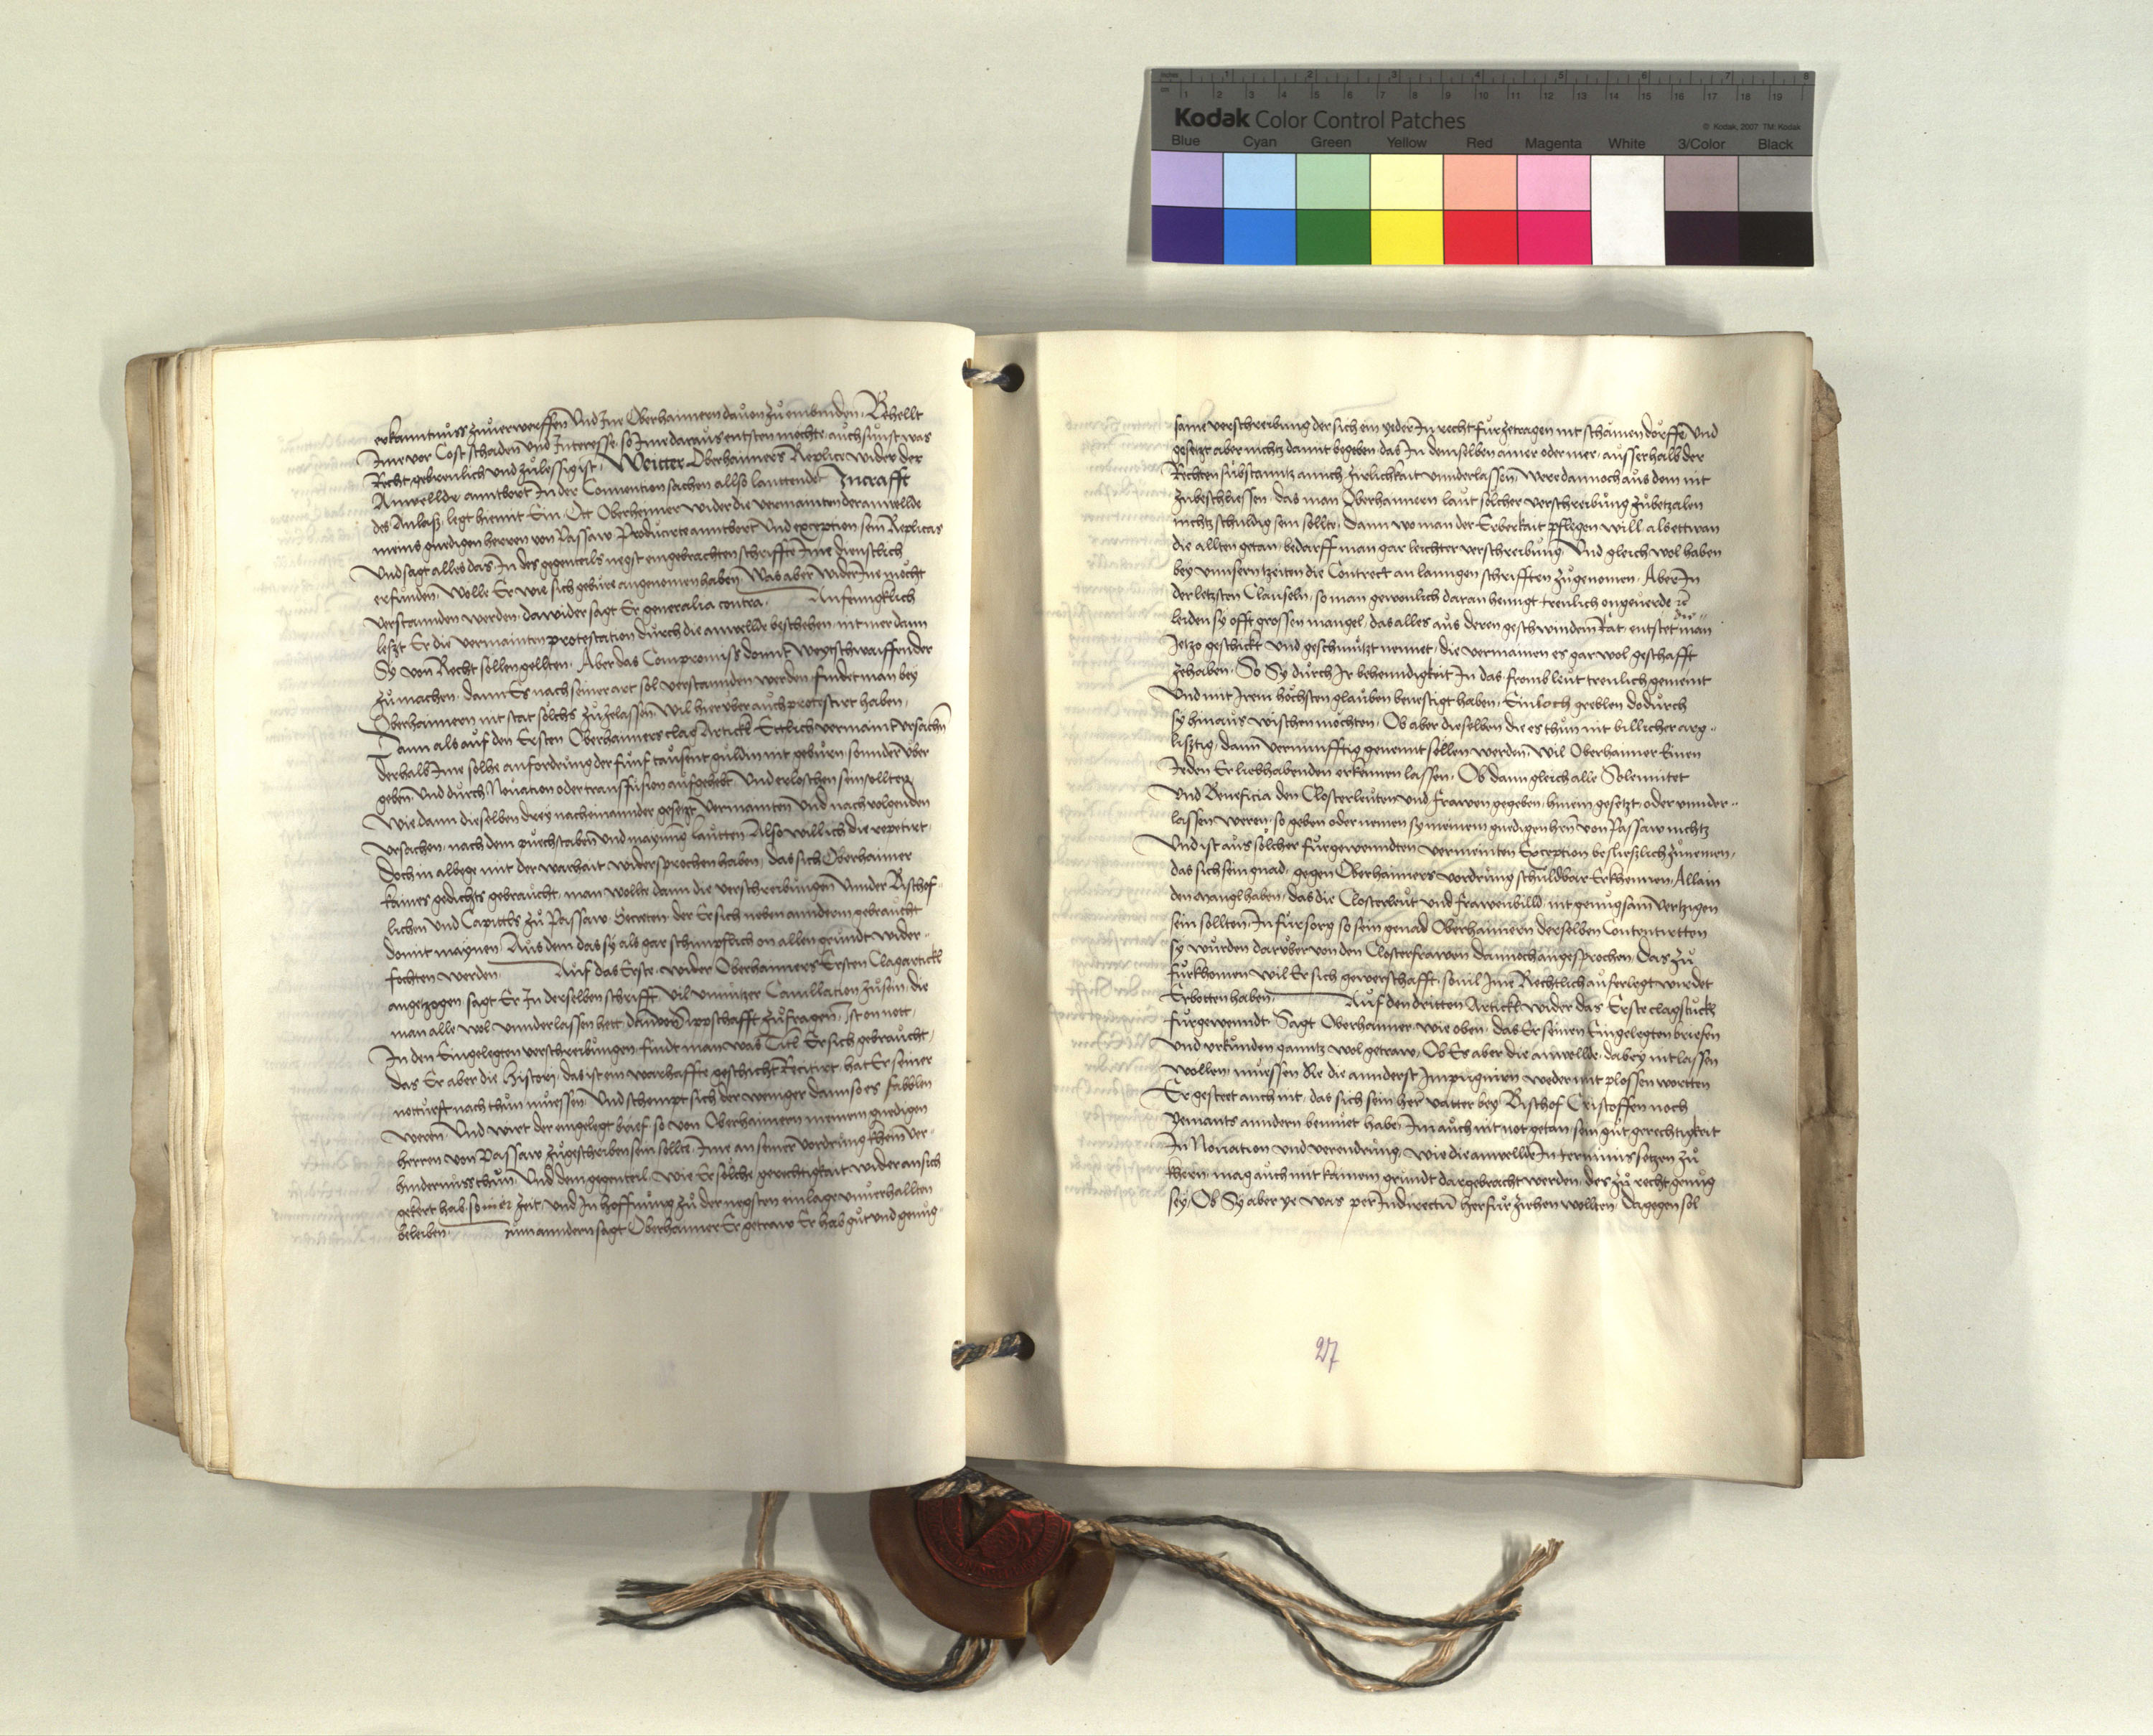 Kodak Color Control Patches
© Kodak, 2007 TM: Kodak
Blue Cyan Green Yellow Red Magenta White 3/Color Black
erkanntnüss zůuerwerffen Vnd Ine Oberhaimern dauon zů embinden. Behellt
Ime vor Cost schaden Vnd Interesse so Ime daraus entsten möchte auch sunst was
Recht gebreuchlich vnd zulessig ist. Weitter Oberhaimers Replick wider der
Anwellde anntbort In der Convention sachen allso lauttende Incrafft
des Anlass legt hiemit Ein Ott Oberheimer wider die vermainten der anwellde
meins gnedigen herren von Passaw Producirte anntbort Vnd exception sein Replicas
Vnd sagt alles das In des gegenteils negst eingebrachten schrifften Ime dienstlich
erfunden wolle Er wie sich gebüre angenomen haben Was aber wider Ine möcht
verstannden werden dawider sagt Er generalia contra. Anfenngklich
leszt Er die vermainten protestation dürch die anwellde beschehen nit mer dann
Sy von Recht sollen gellten. Aber das Compromiss domit weytschwaiffender
zu machen dann Es nach seiner art sol verstannden werden findet man bey
Oberhaimern nit stat sölchs zůzelassen wil hierüber auch protestirt haben
Dann als auf den Ersten Oberhaimers clag Artickl Ettlich vermaint vrsachn
derhalb Ime solhe anfordrung der fünf tausent guldin nit gebürn sonnder über
geben Vnd durch Nouation oder transfusion aufgehebt Vnd erloschen sein sollten
Wie dann dieselben drey nacheinannder gesetzt vermainten Vnd nachvolgenden
vrsachen nach dem puechstaben Vnd maynung lautten Also will ich die repetirt
doch in albege mit der warhait widersprochen haben das sich Oberhaimer
kaines gedichts gebraucht man wolte dann die verschreibungen vnnder Bischof-
lichen vnd Capittls zu Passaw Secreten der Er sich neben anndern gebraucht
domit maynen Aus dem das sy als gar schimpflich on allen grundt wider-
fochten werden Auf das Erste wider Oberhaimers Ersten Clagartickl
angetzogen sagt Er In derselben schrifft vil vnnützer Cauillation zusein die
man alle wol vnnderlassen hett dann von Sippschafft zufragen ist on nott
In den Eingelegten verschreibungen findt man was Titl Er sich gebraucht
das Er aber die histori das ist ein warhaffte geschicht Recitirt hat Er seiner
notturft nach thun müessen Vnd schempt sich der weniger dann so es fabblen
weren Vnd wirt der eingelegt brief so von Oberhaimern meinem gnedigen
herren von Passaw zugeschriben sein sollte Ime an seiner vordrung khein ver-
hindernuss thun Vnd dem gegenteil wie Er solche gerechtigkait wider an sich
gekert hab so in er zeit vnd In hoffnung zu der negsten einlage vnuerhallten
beleiben zum anndern sagt Oberhaimer Er getraw Er hab gut vnd genug-
same verschreibung der sich ein yeder In recht fürzetragen nit schamen dörffe Vnd
gesetzt aber nichtz damit begeben das In demselben ainer oder mer ausserhalb der
Rechten substanntz ainich zierlichkait vnnderlassen were dannoch aus dem nit
zubeschliessen das man Oberhaimern laut solcher verschreibung zubetzalen
nichtz schuldig sein sollte dann wo man der Erberkait pflegen will als ettwan
die allten getan bedarff man gar leichter verschreibung Vnd gleich wol haben
bey vnnsern tzeiten die Contrect an lanngen schrifften zugenomen Aber In
der letzsten Clauseln so man gewonlich daran hennngt treulich ongeuerde etc
leiden sy offt grossen mangel das alles aus deren geschwinden Rat entstet die man
Jetzo geschickt vnd geschmutzt nennet die vermainen es gar wol geschafft
zehaben So Sy durch Ir behenndigkeit In das fromb leut treulich gemeint
Vnd mit Irem höchsten glauben beuestigt haben Ein loch greblen dodurch
sy hinaus wischen möchten Ob aber dieselben die es thun nit billicher arg-
lisztig dann vernunfftig genennt sollen werden wil Oberhaimer Einen
Jeden Er liebhabenden erkennen lassen Ob dann gleich alle Solennitet
Vnd Beneficia den Closterleuten vnd frawen gegeben hinein gesetzt oder vnnder-
lassen weren so geben oder nemen sy meinem gnedigen hern von Passaw nichtz
Vnd ist aus solcher fürgewenndten vermeinten Exception beslieszlich zunemen
das sich sein gnad gegen Oberhaimers vordrung schuldbar Erkhennen Allain
den mangl haben das die Closterleut vnd frawenbilld nit genugsam vertzigen
sein sollten In fürsorg so sein genad Oberhaimern derselben Contentirtten
sy wurden darüber von den Closterfrawen dannoch angesprochen Das zu
fürkhomen wil Er sich gewerschafft souil Ime Rechtlich auferlegt wurdet
Erbotten haben Auf den dritten Artickl wider das Erste clagstuckh
fürgewenndt Sagt Oberhaimer wie oben das Er seinen Eingelegten briefen
vnd vrkunden ganntz wol getraw Ob Es aber die anwellde dabey nit lassen
wollen müessen Sie die annderst Impugniren weder mit plossen wortten
Er gesteet auch nit das sich sein her vatter bey Bischof Cristoffen noch
yemants anndern bemuet habe Im auch nit not getan sein gut gerechtigkeit
In Nouation vnd verendrung wie die anwellde In terminis setzen zu
khern mag auch mit kainem grundt dargebracht werden des zu recht genug
sey Ob Sy aber ye was per Indirectum herfür ziehen wollten Dagegen sol
27